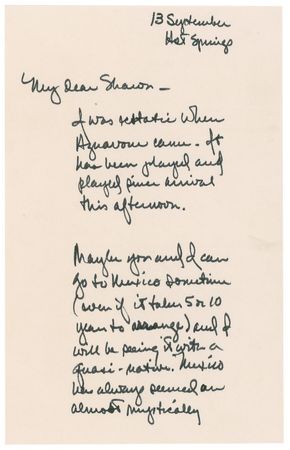 13 September
Hot Springs
My Dear Shawn —
I was ecstatic when
Aznavour came. It
has been played and
played since arrival
this afternoon.
Maybe you and I can
go to Mexico sometime
(even if it takes 5 or 10
years to arrange) and I
will be seeing it with a
quasi-native. Mexico
has always seemed an
almost mystically